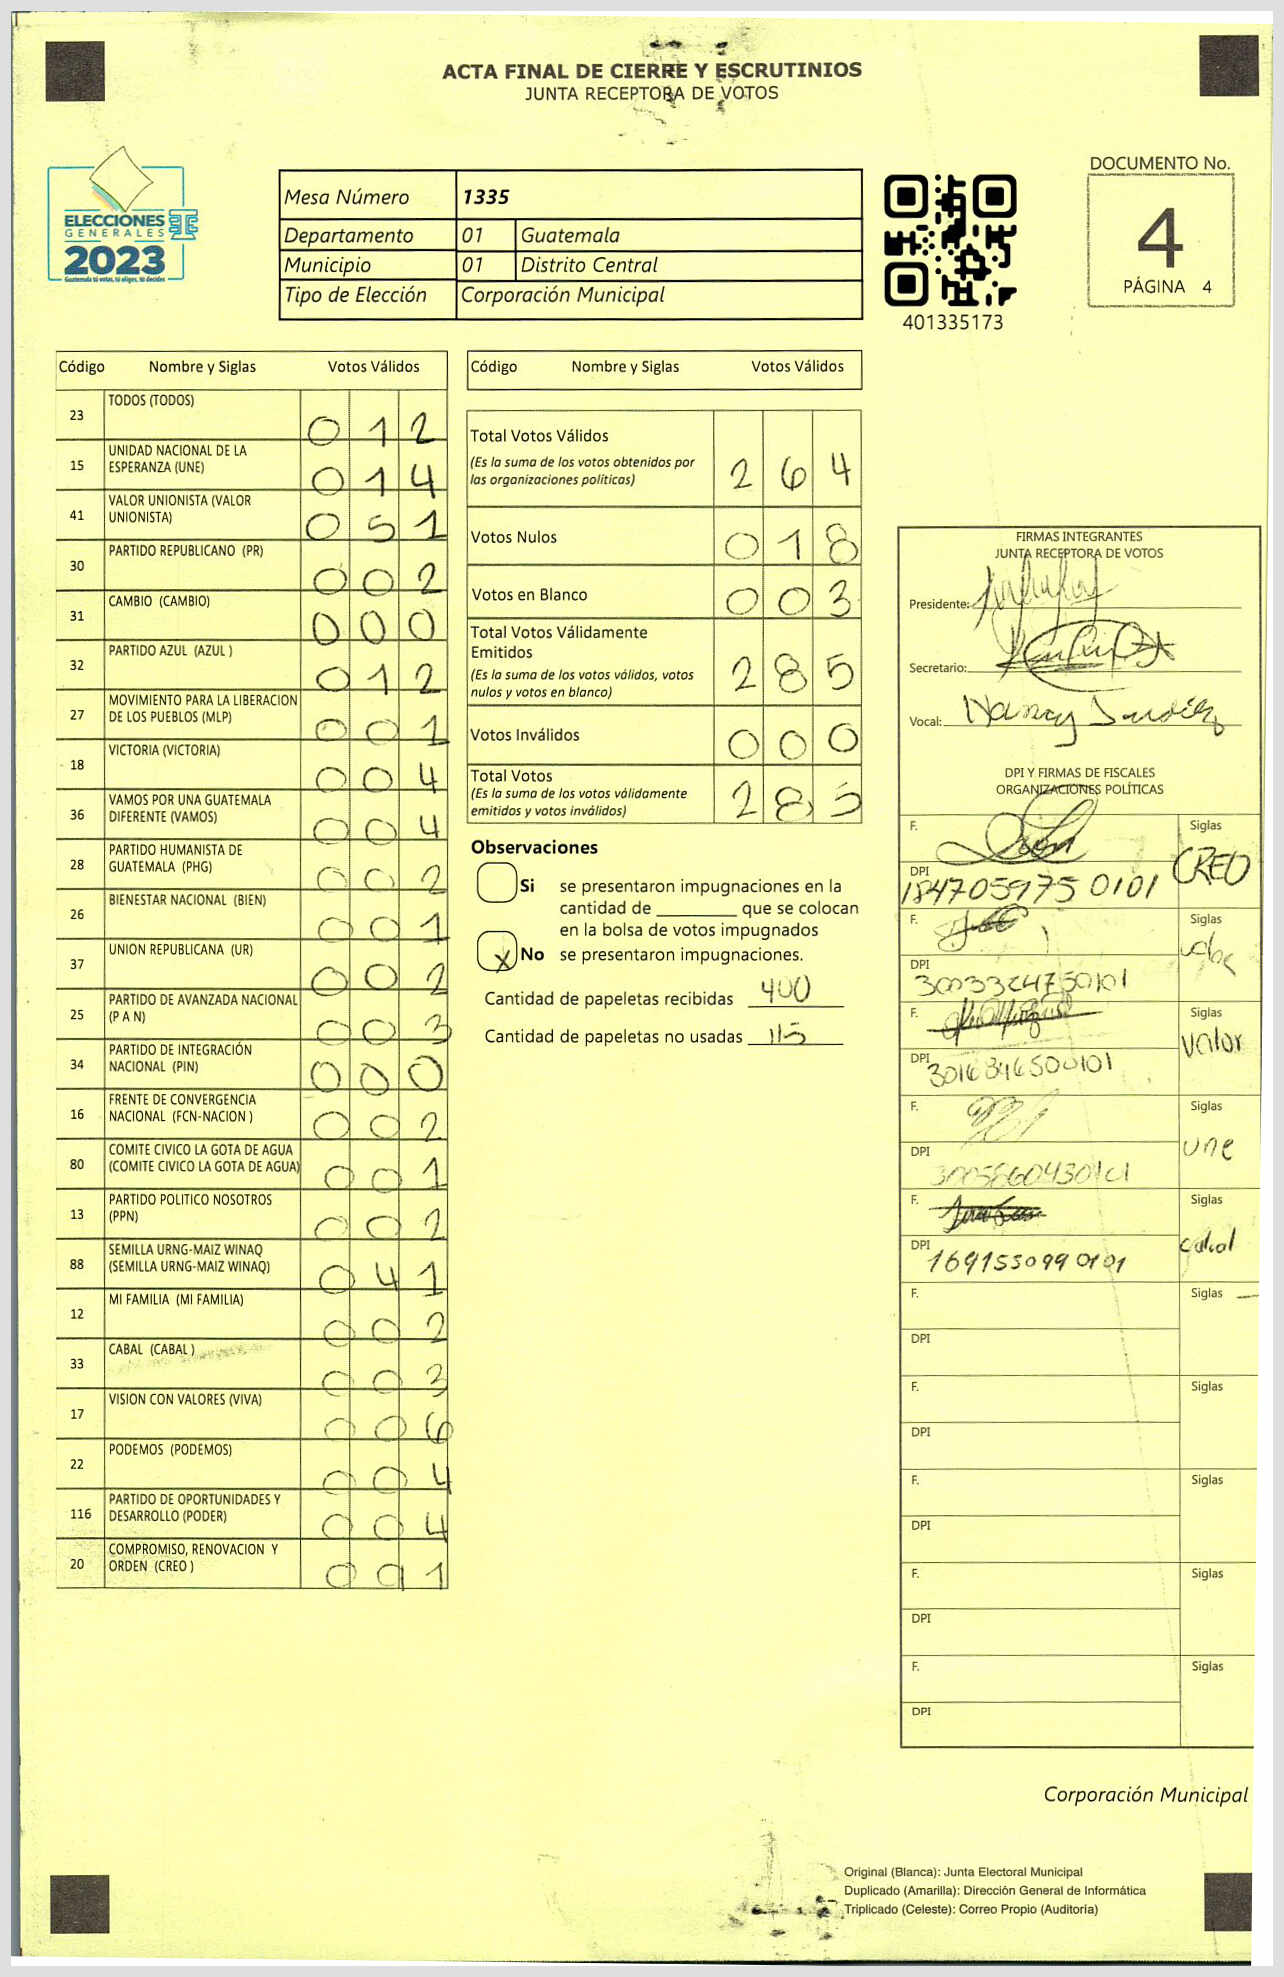 ACTA FINAL DE CIERRE Y ESCRUTINIOS
JUNTA RECEPTORA DE VOTOS
ELECCIONES
GENERALES
2023
Guatemala tú votas, tú eliges, tú decides
Mesa Número 1335
Departamento 01 Guatemala
Municipio 01 Distrito Central
Tipo de Elección Corporación Municipal
401335173
DOCUMENTO No.
4
PÁGINA 4
Código Nombre y Siglas Votos Válidos
23 TODOS (TODOS) 0 1 2
15 UNIDAD NACIONAL DE LA
ESPERANZA (UNE) 0 1 4
41 VALOR UNIONISTA (VALOR
UNIONISTA) 0 5 1
30 PARTIDO REPUBLICANO (PR) 0 0 2
31 CAMBIO (CAMBIO) 0 0 0
32 PARTIDO AZUL (AZUL ) 0 1 2
27 MOVIMIENTO PARA LA LIBERACION
DE LOS PUEBLOS (MLP) 0 0 1
18 VICTORIA (VICTORIA) 0 0 4
36 VAMOS POR UNA GUATEMALA
DIFERENTE (VAMOS) 0 0 4
28 PARTIDO HUMANISTA DE
GUATEMALA (PHG) 0 0 2
26 BIENESTAR NACIONAL (BIEN) 0 0 1
37 UNION REPUBLICANA (UR) 0 0 2
25 PARTIDO DE AVANZADA NACIONAL
(P A N) 0 0 3
34 PARTIDO DE INTEGRACIÓN
NACIONAL (PIN) 0 0 0
16 FRENTE DE CONVERGENCIA
NACIONAL (FCN-NACION ) 0 0 2
80 COMITE CIVICO LA GOTA DE AGUA
(COMITE CIVICO LA GOTA DE AGUA) 0 0 1
13 PARTIDO POLITICO NOSOTROS
(PPN) 0 0 2
88 SEMILLA URNG-MAIZ WINAQ
(SEMILLA URNG-MAIZ WINAQ) 0 4 1
12 MI FAMILIA (MI FAMILIA) 0 0 2
33 CABAL (CABAL ) 0 0 3
17 VISION CON VALORES (VIVA) 0 0 6
22 PODEMOS (PODEMOS) 0 0 4
116 PARTIDO DE OPORTUNIDADES Y
DESARROLLO (PODER) 0 0 4
20 COMPROMISO, RENOVACION Y
ORDEN (CREO ) 0 9 1
Código Nombre y Siglas Votos Válidos
Total Votos Válidos
(Es la suma de los votos obtenidos por
las organizaciones políticas) 2 6 4
Votos Nulos 0 1 8
Votos en Blanco 0 0 3
Total Votos Válidamente
Emitidos
(Es la suma de los votos válidos, votos
nulos y votos en blanco) 2 8 5
Votos Inválidos 0 0 0
Total Votos
(Es la suma de los votos válidamente
emitidos y votos inválidos) 2 8 5
Observaciones
Si se presentaron impugnaciones en la
cantidad de ________ que se colocan
en la bolsa de votos impugnados
X No se presentaron impugnaciones.
Cantidad de papeletas recibidas 400
Cantidad de papeletas no usadas 115
FIRMAS INTEGRANTES
JUNTA RECEPTORA DE VOTOS
Presidente:
Secretario:
Vocal: Nancy
DPI Y FIRMAS DE FISCALES
ORGANIZACIONES POLÍTICAS
F. Siglas
CREO
DPI 184705975 0101
F. Siglas
DPI
F. Siglas
Valor
DPI 3016846500101
F. Siglas
une
DPI
F. Siglas
cabal
DPI 169155099 0101
F. Siglas
DPI
F. Siglas
DPI
F. Siglas
DPI
F. Siglas
DPI
F. Siglas
DPI
Corporación Municipal
Original (Blanca): Junta Electoral Municipal
Duplicado (Amarilla): Dirección General de Informática
Triplicado (Celeste): Correo Propio (Auditoría)